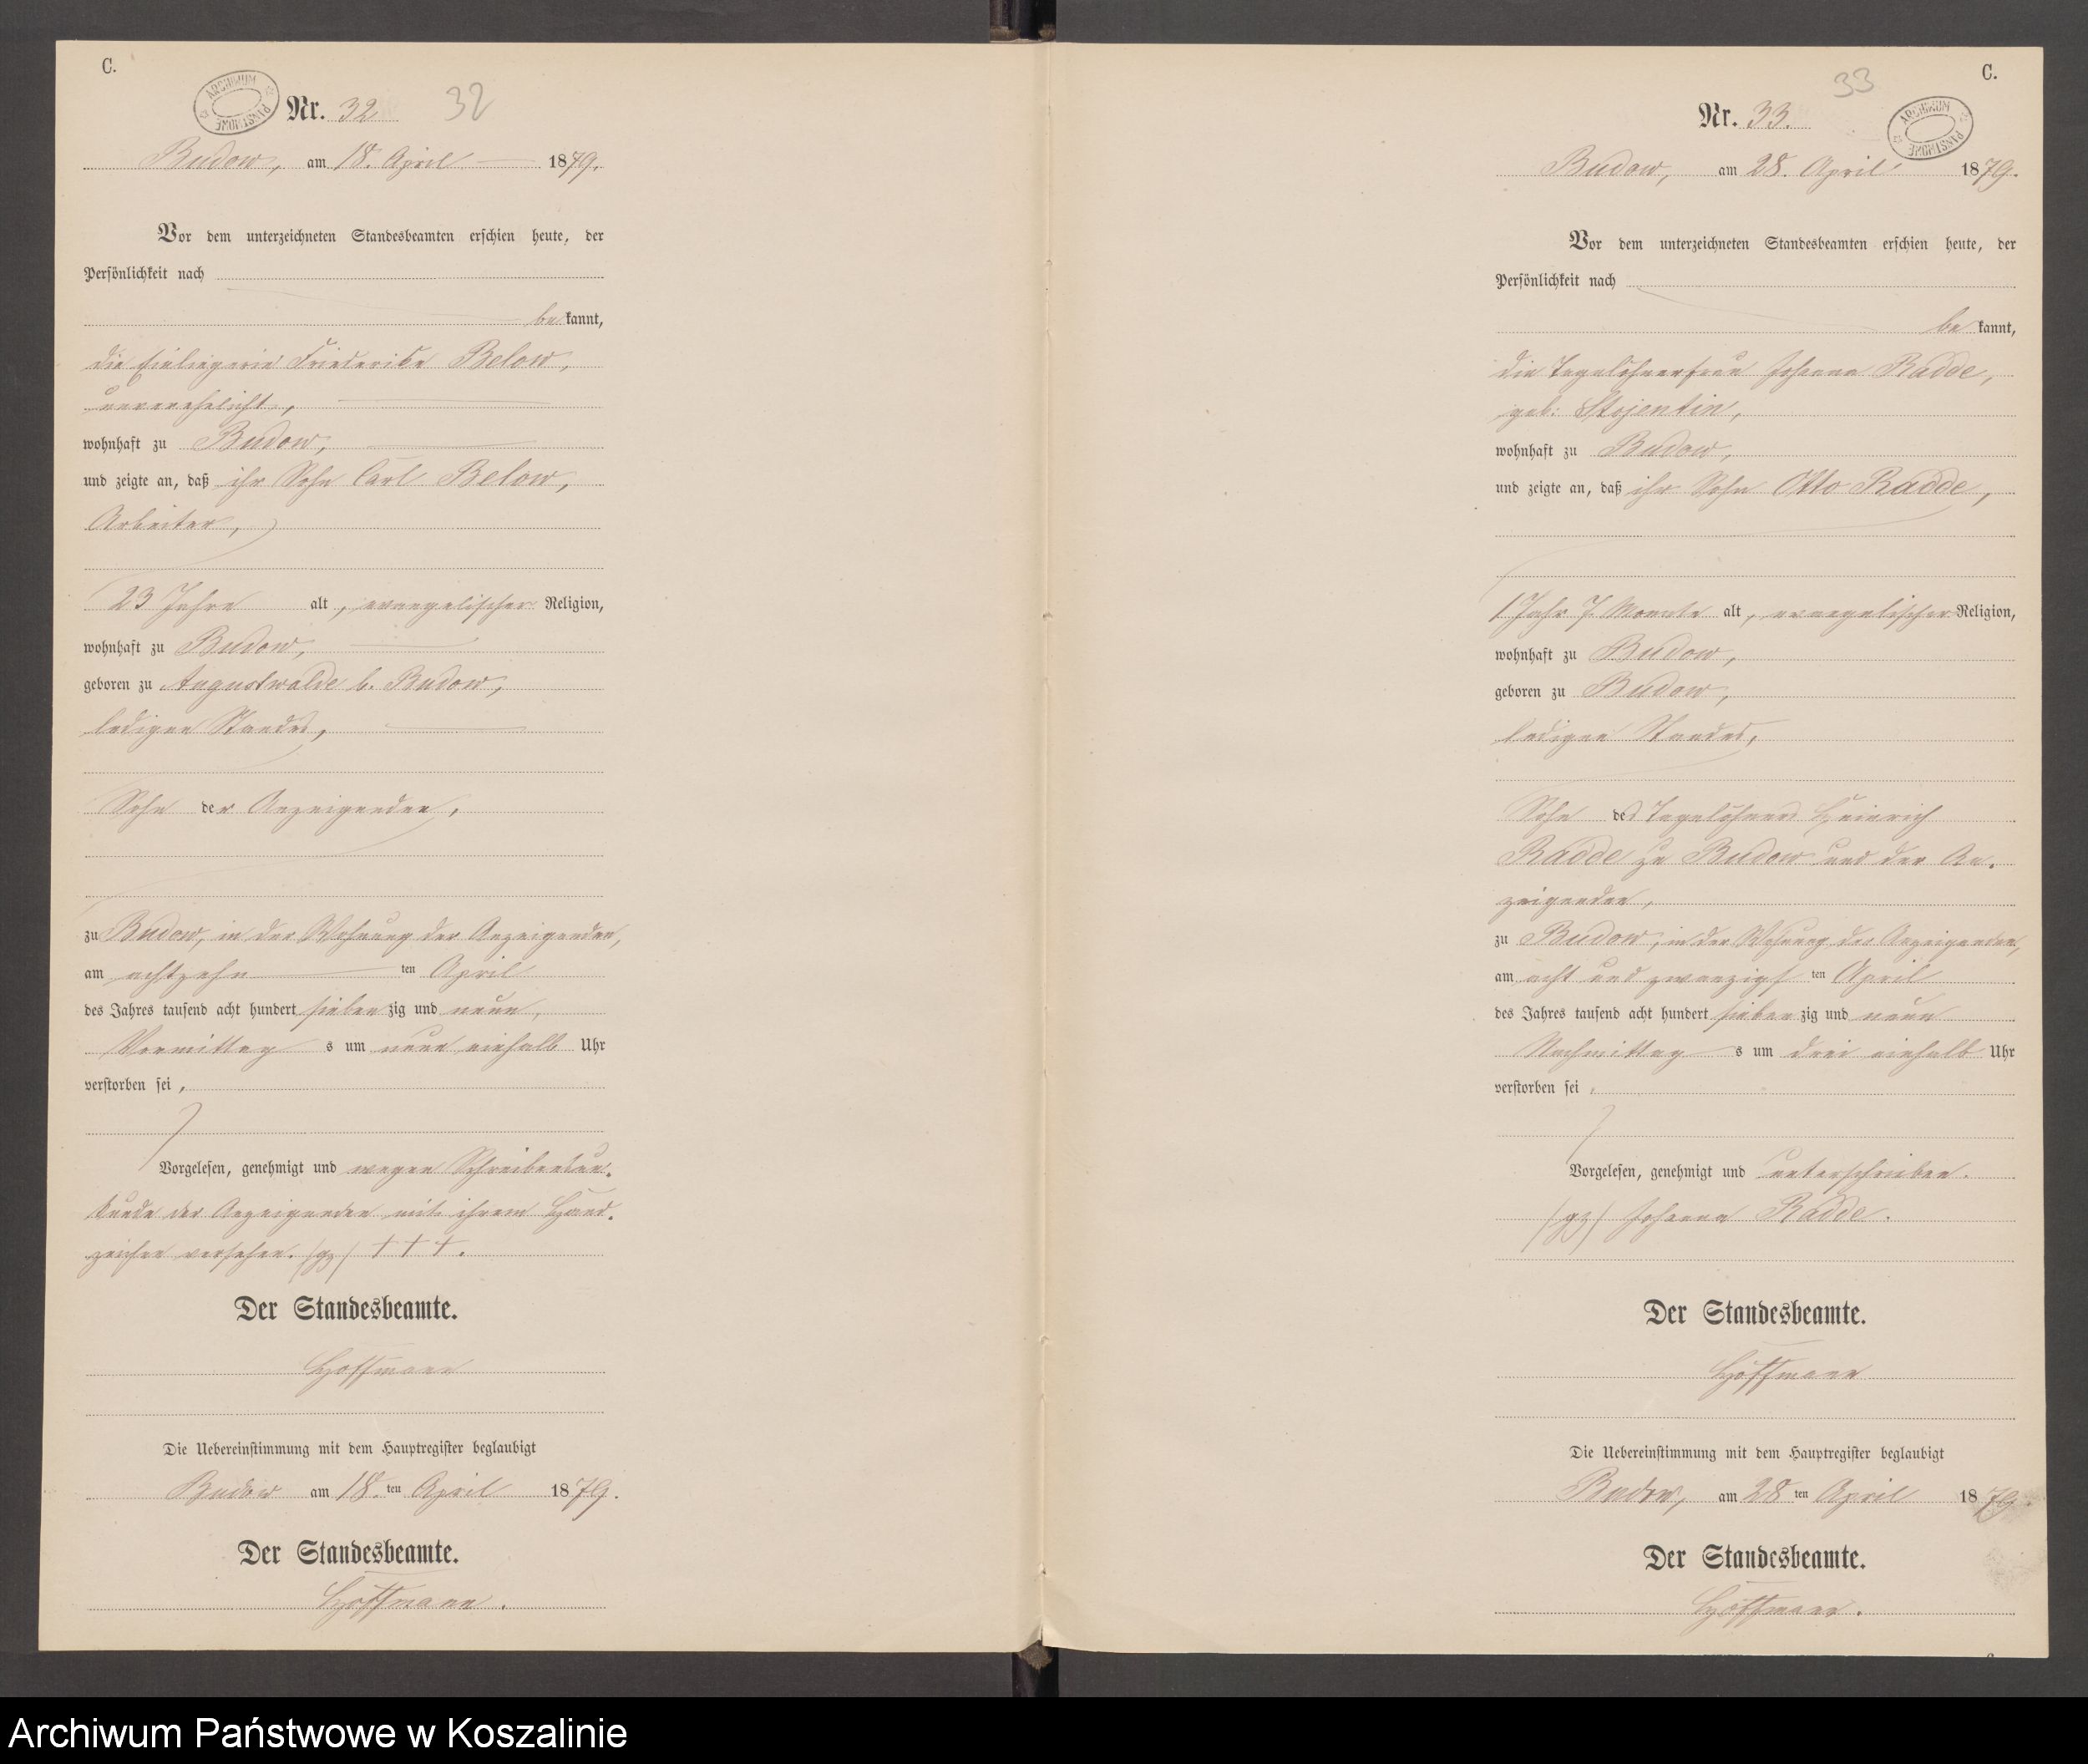 C.
ARCHIWUM PAŃSTWOWE
Nr. 32 32
Budow, am 18. April 1879.
Vor dem unterzeichneten Standesbeamten erschien heute, der
Persönlichkeit nach
bekannt,
die Einliegerin Friederike Below,
unverehelicht,
wohnhaft zu Budow,
und zeigte an, daß ihr Sohn Carl Below,
Arbeiter,
23 Jahre alt, evangelischer Religion,
wohnhaft zu Budow,
geboren zu Augustwalde b. Budow,
ledigen Standes,
Sohn der Anzeigenden,
zu Budow, in der Wohnung der Anzeigenden,
am achtzehnten April
des Jahres tausend acht hundert siebenzig und neun,
Vormittags um neun einhalb Uhr
verstorben sei,
Vorgelesen, genehmigt und wegen Schreibensun-
kunde der Anzeigenden mit ihrem Hand-
zeichen versehen. (gz) † † †.
Der Standesbeamte.
Hoffmann
Die Uebereinstimmung mit dem Hauptregister beglaubigt
Budow am 18.ten April 1879.
Der Standesbeamte.
Hoffmann.
C.
33
ARCHIWUM PAŃSTWOWE
Nr. 33.
Budow, am 28. April 1879.
Vor dem unterzeichneten Standesbeamten erschien heute, der
Persönlichkeit nach
bekannt,
die Tagelöhnerfrau Johanna Radde,
geb: Stojentin,
wohnhaft zu Budow,
und zeigte an, daß ihr Sohn Otto Radde,
1 Jahr 7 Monate alt, evangelischer Religion,
wohnhaft zu Budow,
geboren zu Budow,
ledigen Standes,
Sohn des Tagelöhners Heinrich
Radde zu Budow und der An-
zeigenden,
zu Budow, in der Wohnung der Anzeigenden,
am acht und zwanzigsten April
des Jahres tausend acht hundert siebenzig und neun
Nachmittags um drei einhalb Uhr
verstorben sei,
Vorgelesen, genehmigt und unterschrieben.
(gz) Johanna Radde.
Der Standesbeamte.
Hoffmann
Die Uebereinstimmung mit dem Hauptregister beglaubigt
Budow, am 28ten April 1879.
Der Standesbeamte.
Hoffmann.
Archiwum Państwowe w Koszalinie